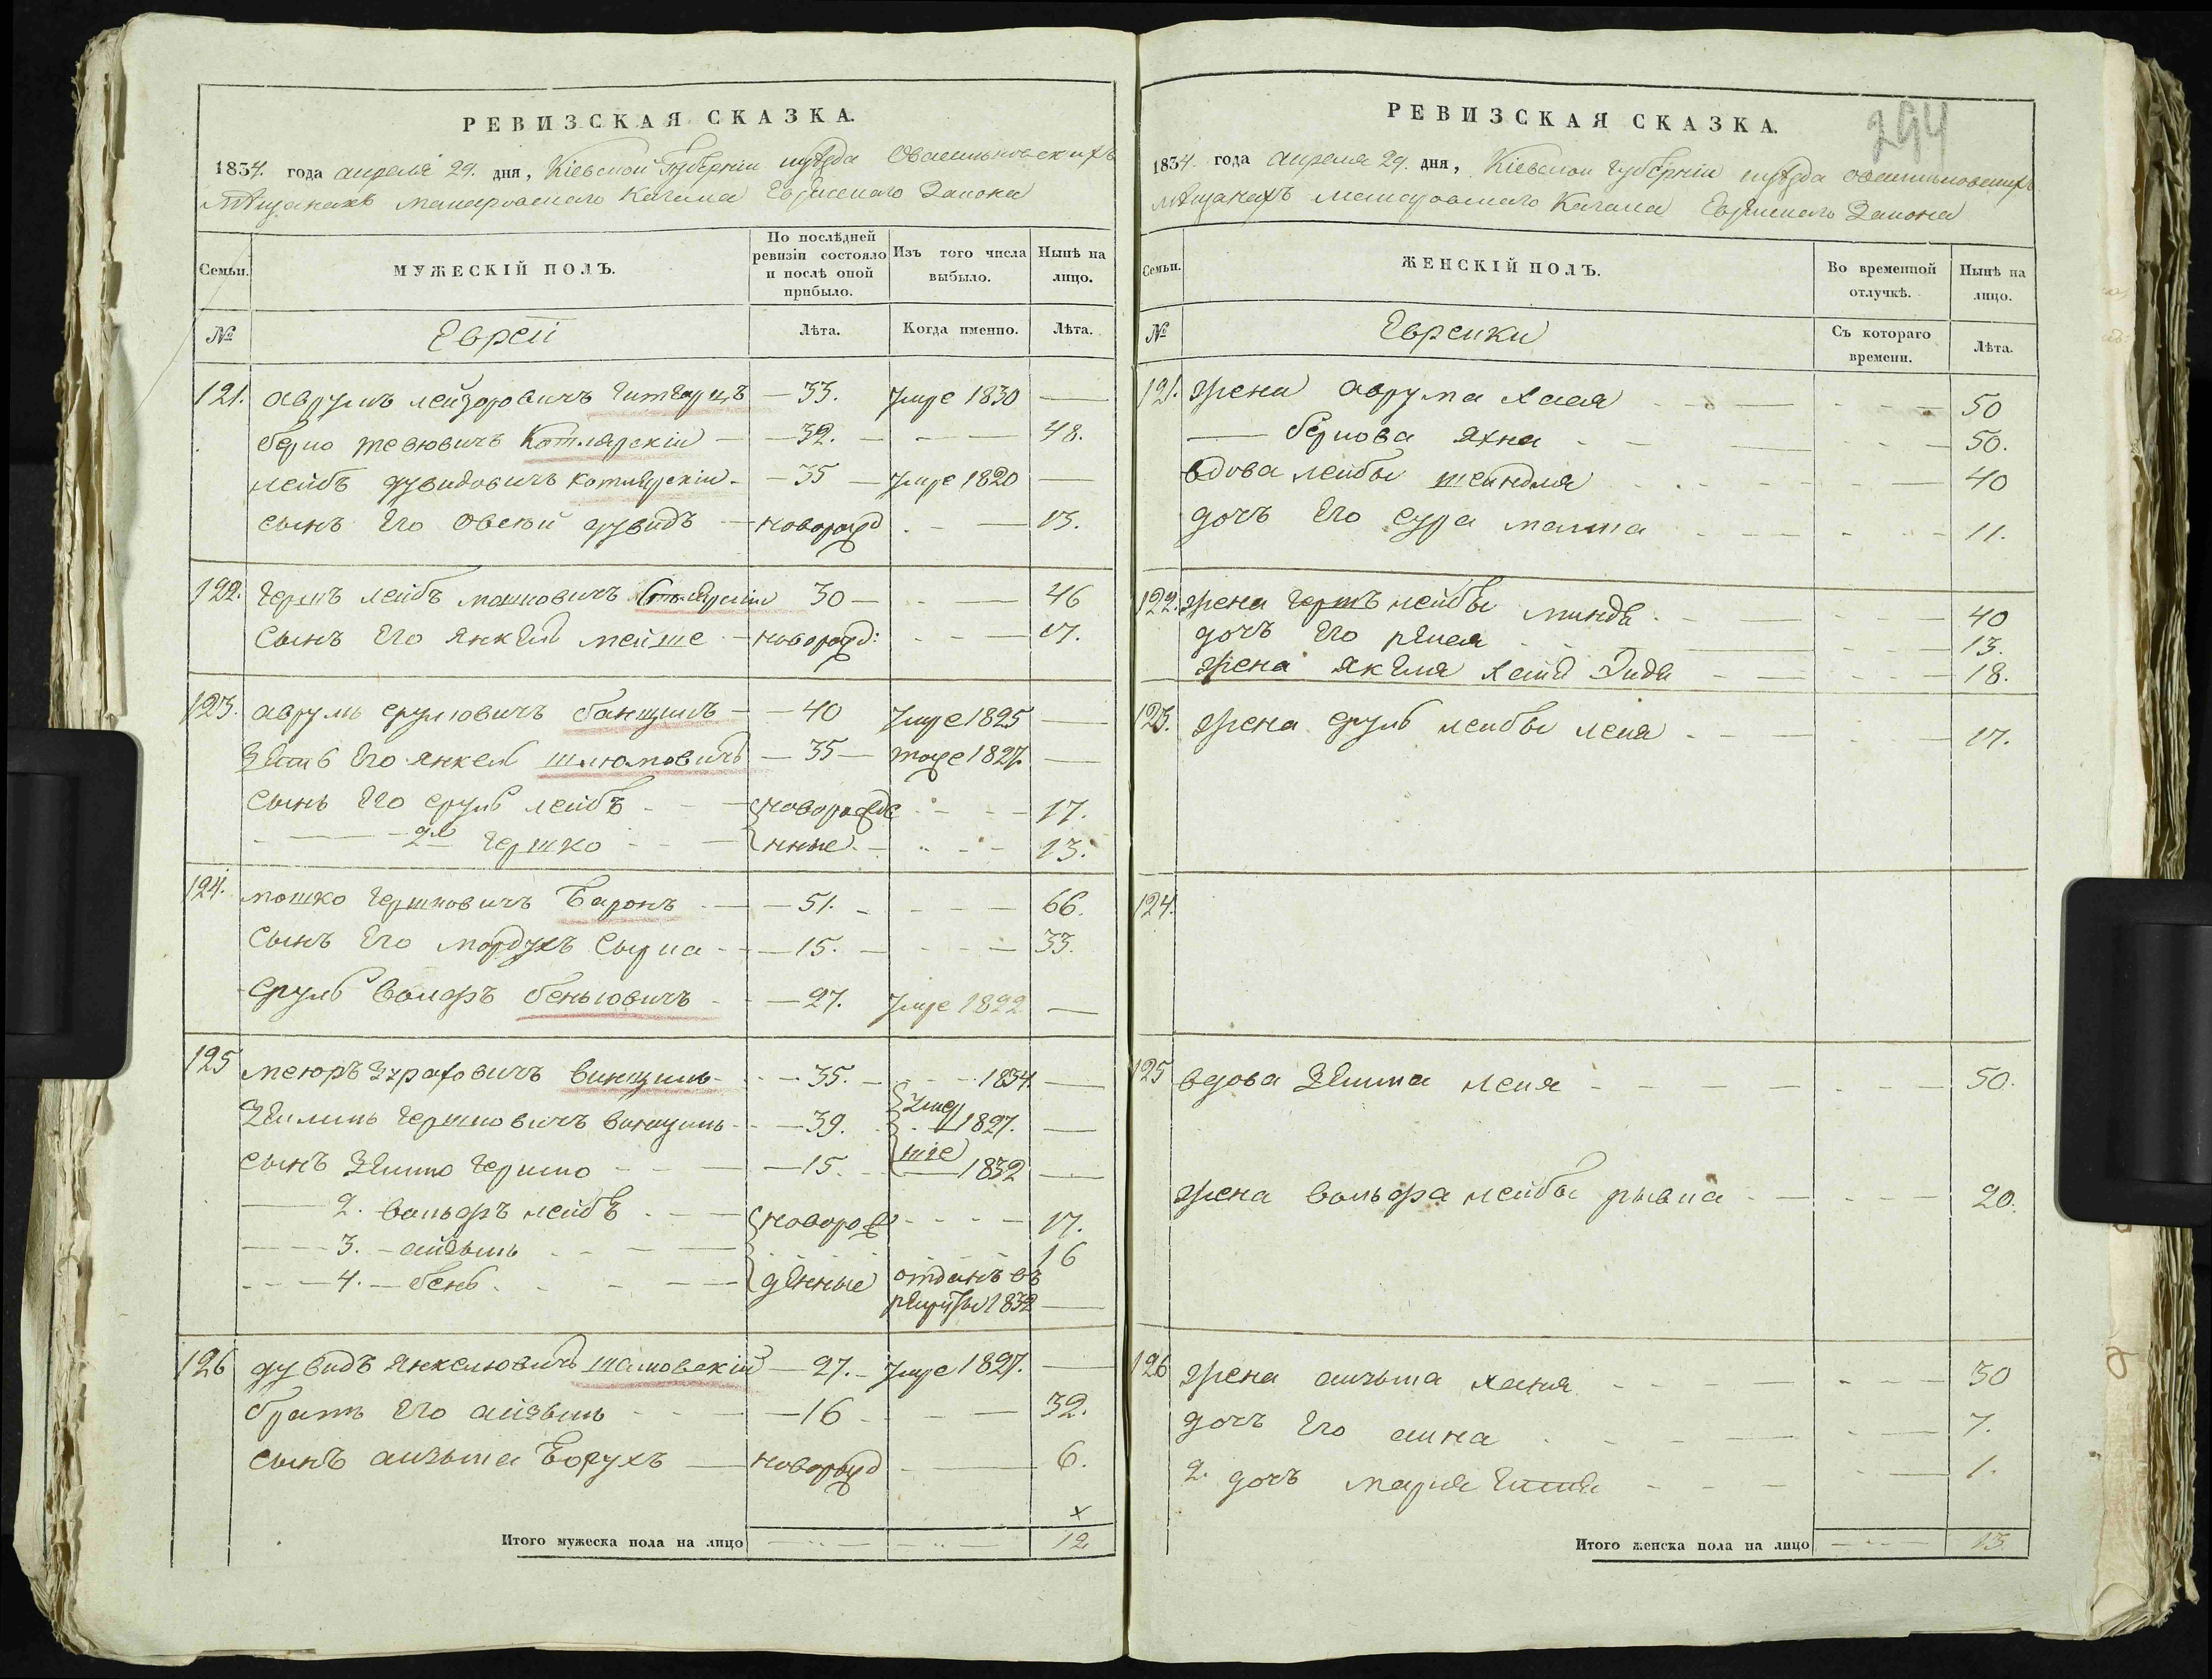 РЕВИЗСКАЯ СКАЗКА.
1834. года апреля 29. дня, Кіевской Губерніи
Мѣщанахъ Макаровскаго Кагала Еврейскаго Закона
Семьи.
МУЖЕСКІЙ ПОЛЪ.
По послѣдней ревизіи состояло и послѣ оной прибыло.
Изъ того числа выбыло.
Нынѣ на лицо.
№
Евреи
Лѣта.
Когда именно.
Лѣта.
121. Аврумъ Лейзоровичъ — 33. умре 1830 —
берко тевювичъ Котлярскій — 32. — — 48.
лейбъ дувидовичъ котлярскій — 35 — умре 1820 —
сынъ Его овсей дувидъ — новорожд — 13.
122. Гершъ лейбъ мошковичъ 30 — — 46
Сынъ Его Янкель мейше — новорожд: — 17.
123. аврумъ срулювичъ банщикъ — 40 умре 1825 —
Зять Его янкель шлюмовичъ — 35 — тоже 1827. —
Сынъ Его сруль лейбъ — новорожде — 17.
— 2й Гершко — нные — 13.
124. мошко Гершковичъ Баронъ — 51. — — 66.
Сынъ Его Мордухъ Сырка — 15. — — 33.
Сруль Вольфъ беньювичъ — 27. умре 1822 —
125 — 35. — 1834. —
Гершковичъ — 39. умер 1827. —
сынъ Гершко — 15. шіе 1832 —
— 2. вольфъ лейбъ — новорож — 17.
— 3. — айзыкъ — 16
— 4. — бень — дѣнные отданъ въ
рекруты 1832 —
126 дувидъ Янкелювичъ — 27. — умре 1827. —
братъ Его айзыкъ — 16 — — 32.
сынъ айзыка Борухъ — новорожд — 6.
×
Итого мужеска пола на лицо — — 12
294
РЕВИЗСКАЯ СКАЗКА.
1834. года апреля 29. дня, Кіевской губерніи
мѣщанахъ макаровскаго Кагала Еврейскаго Закона
Семьи.
ЖЕНСКІЙ ПОЛЪ.
Во временной отлучкѣ.
Нынѣ на лицо.
№
Еврейки
Съ котораго времени.
Лѣта.
121. жена аврума Хая — 50
— беркова Яхна — 50.
вдова лейбы шейндля — 40
дочъ Его сура малка — 11.
122. жена Гершъ лейбы минда — 40
дочъ Его — 13.
жена — 18.
123. жена сруль лейбы лея — 17.
124.
125 вдова лея — 50.
жена вольфа лейбы рывка — 20.
126 жена айзыка — 30
дочъ Его — 7.
2. дочъ — 1.
Итого женска пола на лицо — 13